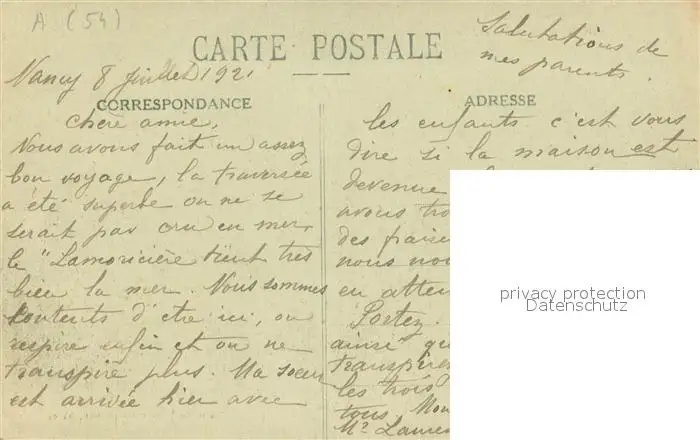 A (54)
CARTE POSTALE
Salutations de
mes parents.
Nancy 8 juillet 1921
CORRESPONDANCE
Chère amie,
Nous avons fait un assez
bon voyage, la traversée
a été superbe on ne se
serait pas cru en mer,
le "Lamoricière tient très
bien la mer. Nous sommes
contents d'etre ici, on
respire enfin et on ne
transpire plus. Ma soeur
est arrivée hier avec
ADRESSE
les enfants c'est vous
dire si la maison est
devenue
avous
des
nous
en
Portez
ainsi
les trois
tous.
privacy protection
Datenschutz